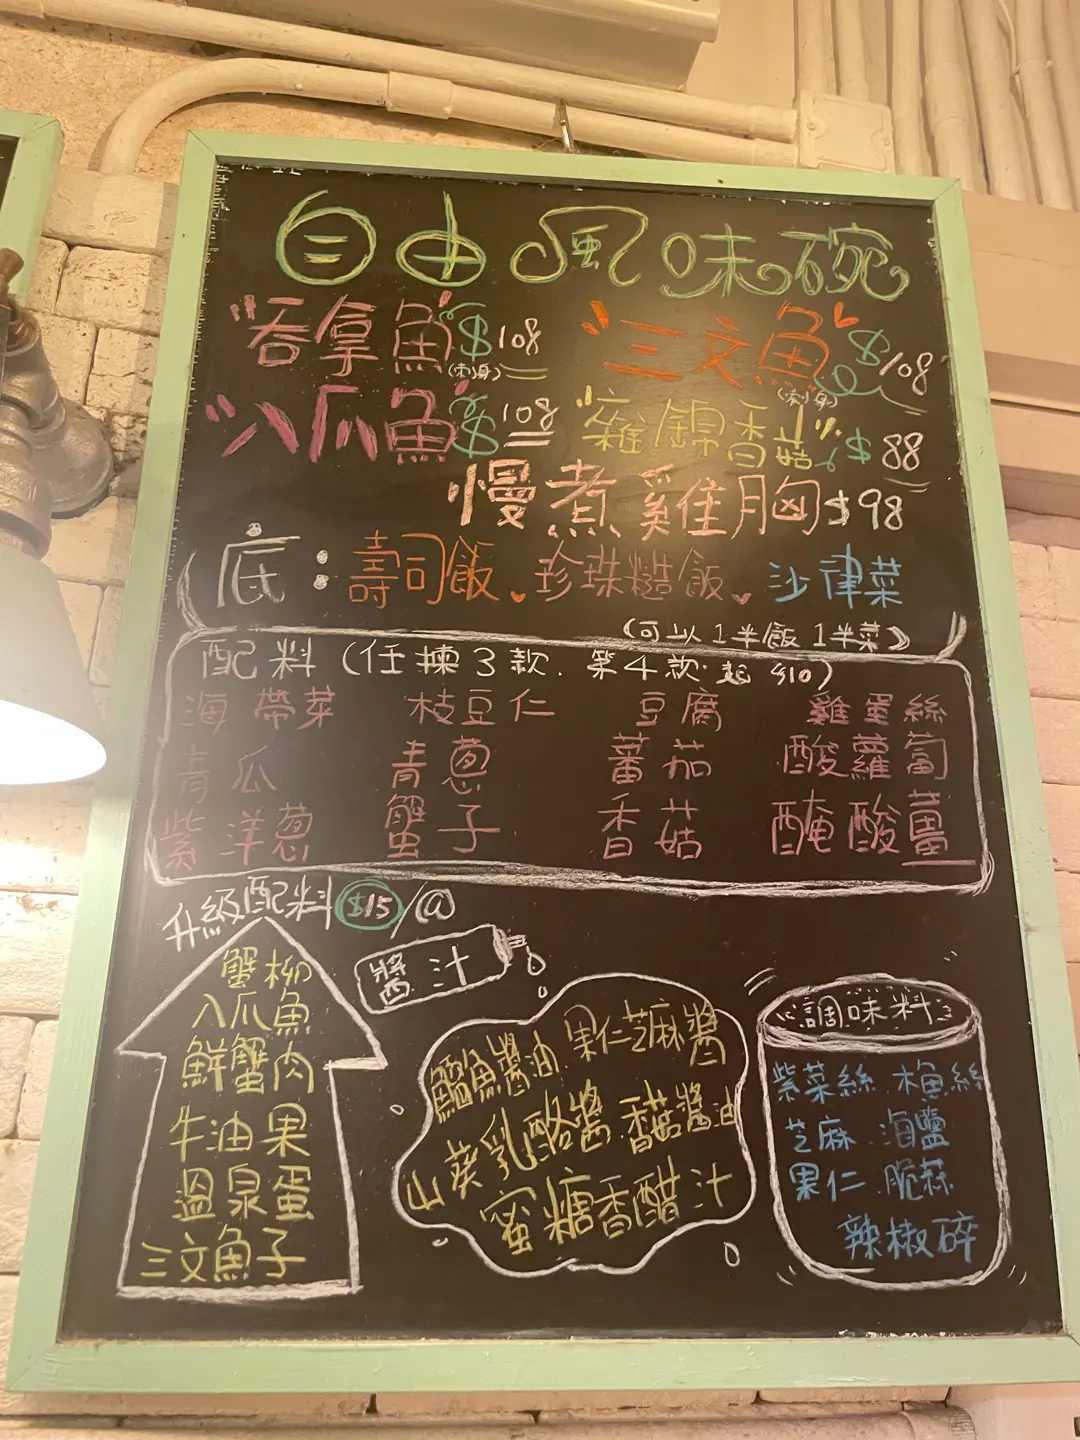 自由風味碗
"吞拿魚"$108 "三文魚"$108
(刺身) (刺身)
"八爪魚"$108 "雜錦香菇"$88
慢煮雞胸$98
底：壽司飯、珍珠糙飯、沙律菜
(可以1半飯1半菜)
配料(任揀3款.第4款起$10)
海帶菜 枝豆仁 豆腐 雞蛋絲
青瓜 青蔥 蕃茄 酸蘿蔔
紫洋蔥 蟹子 香菇 醃酸薑
升級配料$15/@
蟹柳
八爪魚
鮮蟹肉
牛油果
溫泉蛋
三文魚子
醬汁
鰹魚醬油 果仁芝麻醬
山葵乳酪醬 香菇醬油
蜜糖香醋汁
調味料
紫菜絲 木魚絲
芝麻 海鹽
果仁 脆蒜
辣椒碎